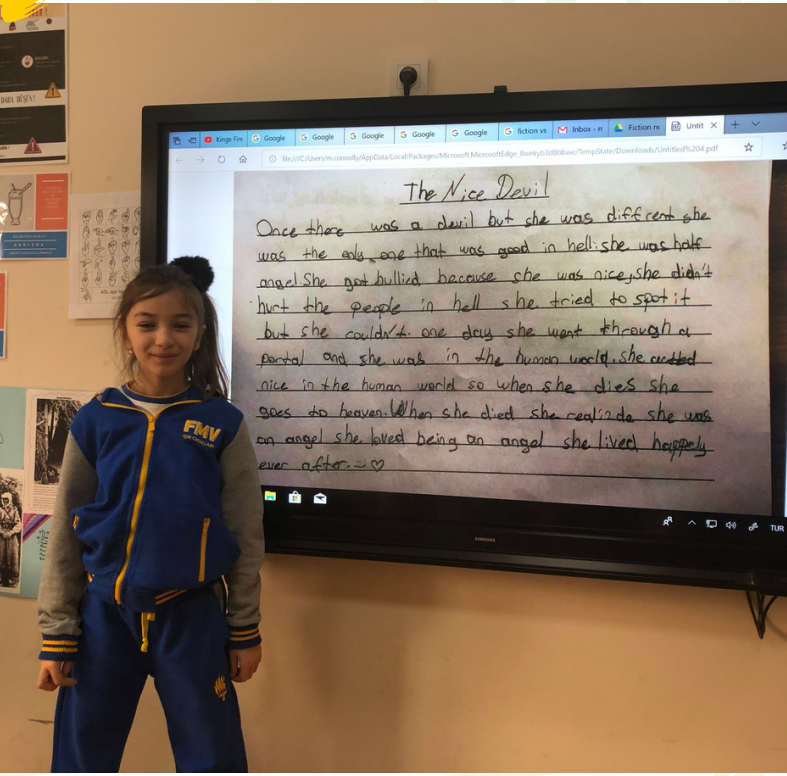 DAHA DÜŞÜN!
Kings Fir
Google
Google
Google
Google
Google
fiction vs
Inbox - r
Fiction no
Untit
file:///C:/Users/m.connolly/AppData/Local/Packages/Microsoft.MicrosoftEdge_8wekyb3d8bbwe/TempState/Downloads/Untitled%204.pdf
The Nice Devil
Once there was a devil but she was diffrent she
was the only one that was good in hell. she was half
angel. She got bullied because she was nice, she didn't
hurt the people in hell she tried to spot it
but she couldn't. one day she went through a
portal and she was in the human world. she acted
nice in the human world so when she dies she
goes to heaven. When she died she realizde she was
an angel she loved being an angel she lived happely
ever after.
FMV
SAMSUNG
TUR